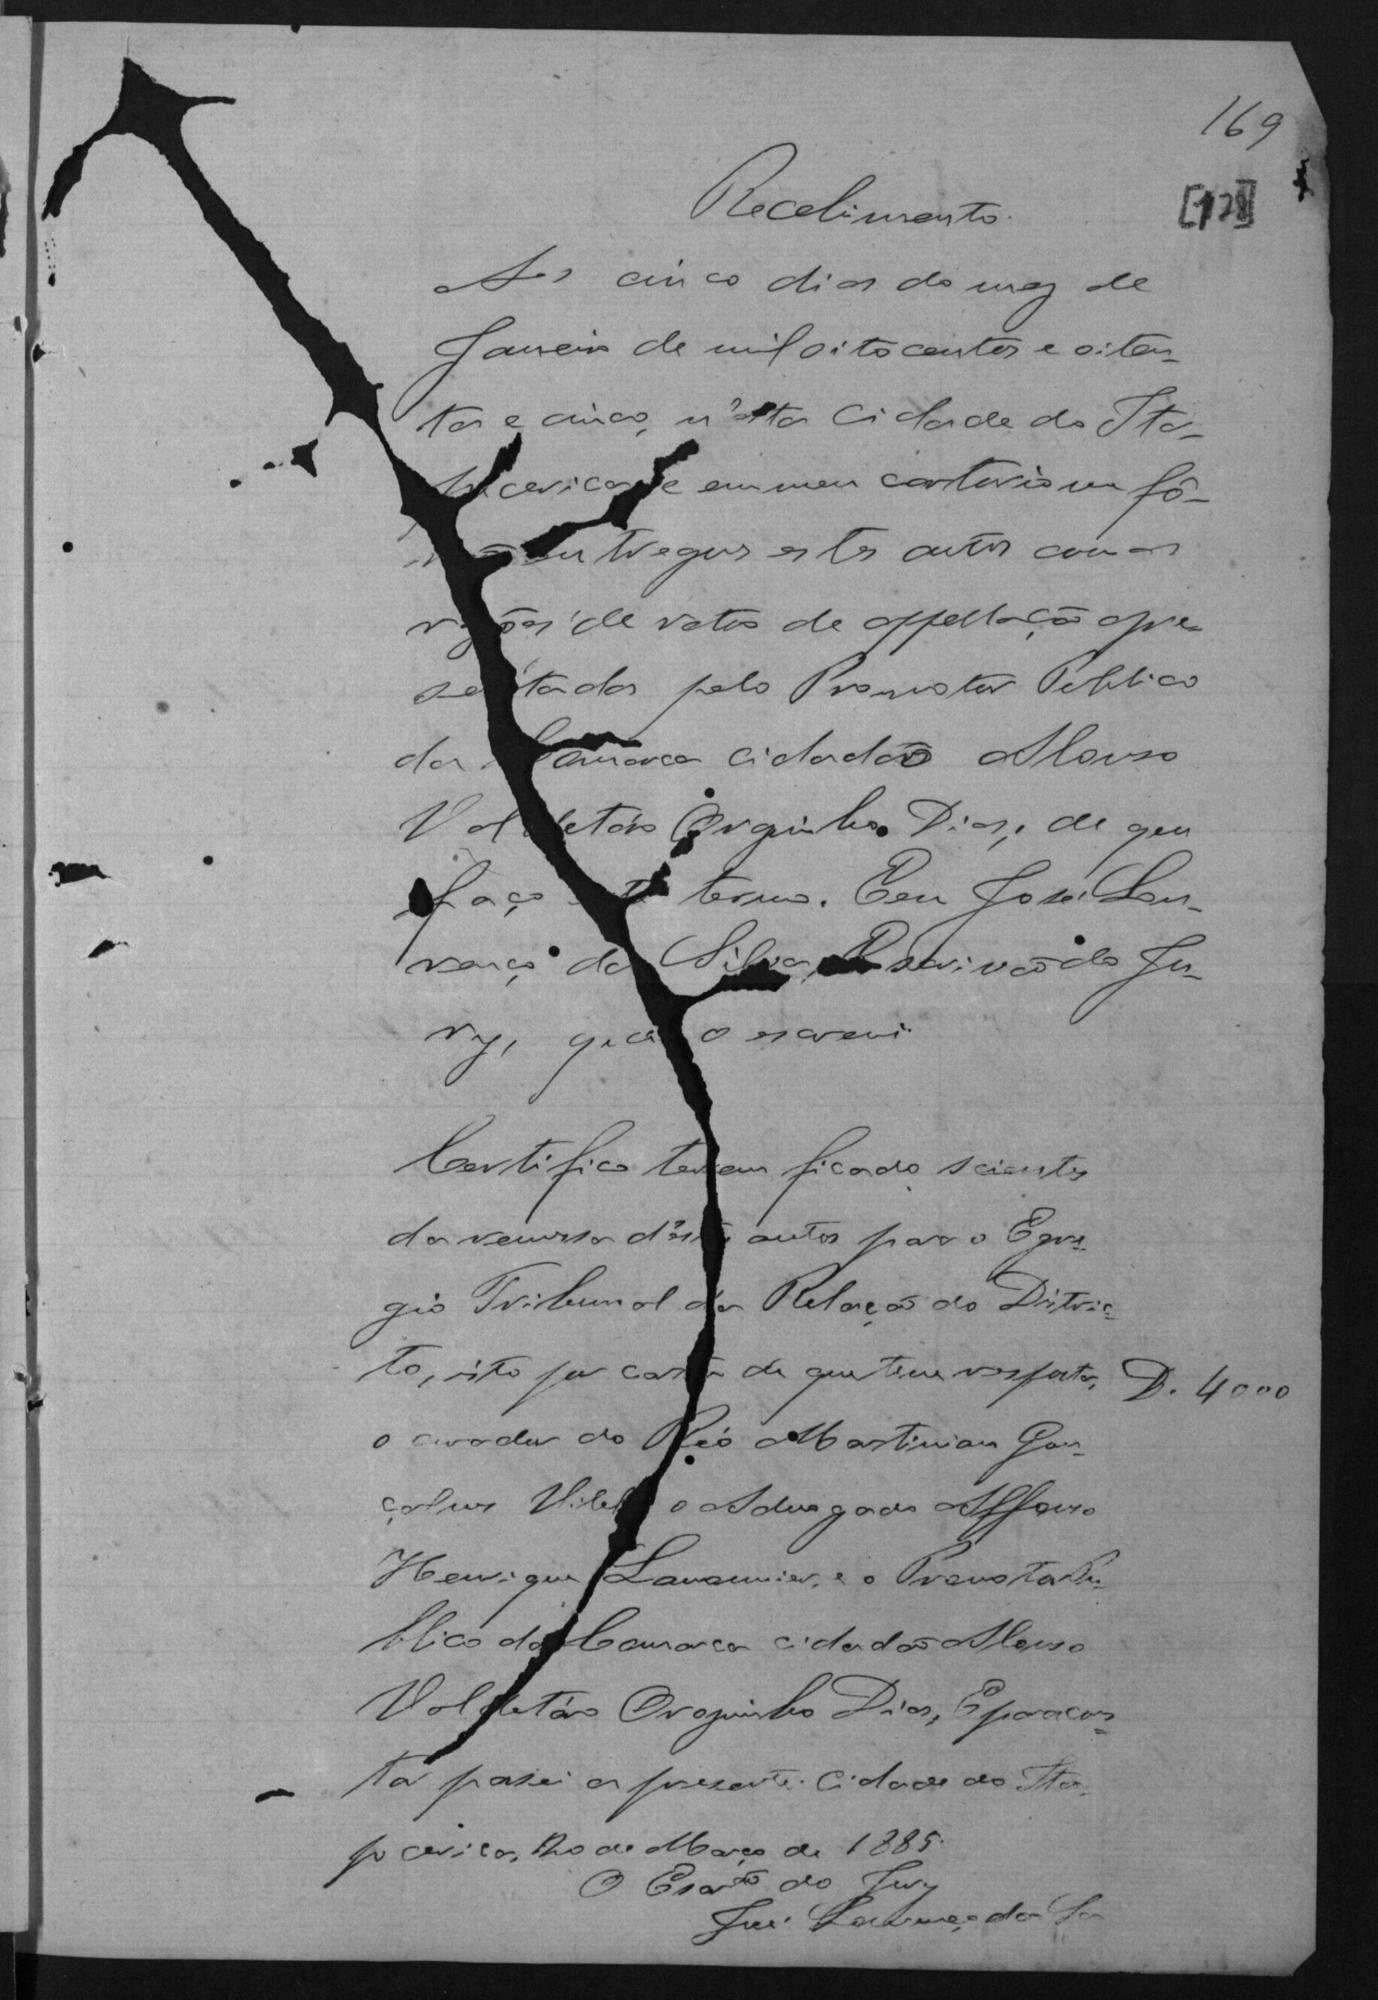 169
[128]
Recebimento.
Aos cinco dias do mez de
Janeiro de mil oitocentos e oiten-
ta e cinco, n'esta Cidade de Ita-
pecerica, e em meu cartorio me fô-
rão entregues estes autos com as
rasões de rateo de appellação apre-
sentadas pelo Promotor Publico
da Comarca cidadão Alonso
Valdetáro Orguinho Dias, de que
faço este termo. Eu José Lou-
renço da Silva, Escrivão do Ju-
ry, que o escrevi.
Certifico terem ficado scientes
da remessa d'estes autos para o Egre-
gio Tribunal da Relação do Distric-
to, isto por carta de que tive resposta,
D. 4000
o curador do Réo Martiniano Gon-
çalves Vilela o Advogado Affonso
Henrique Lamounier, e o Promotor Pu-
blico da Comarca cidadão Alonso
Valdetáro Orguinho Dias, E para cons-
tar passei a presente. Cidade de Ita-
pecerica, 20 de Março de 1885.
O Escrvão do Jury
José Lourenço da Sa